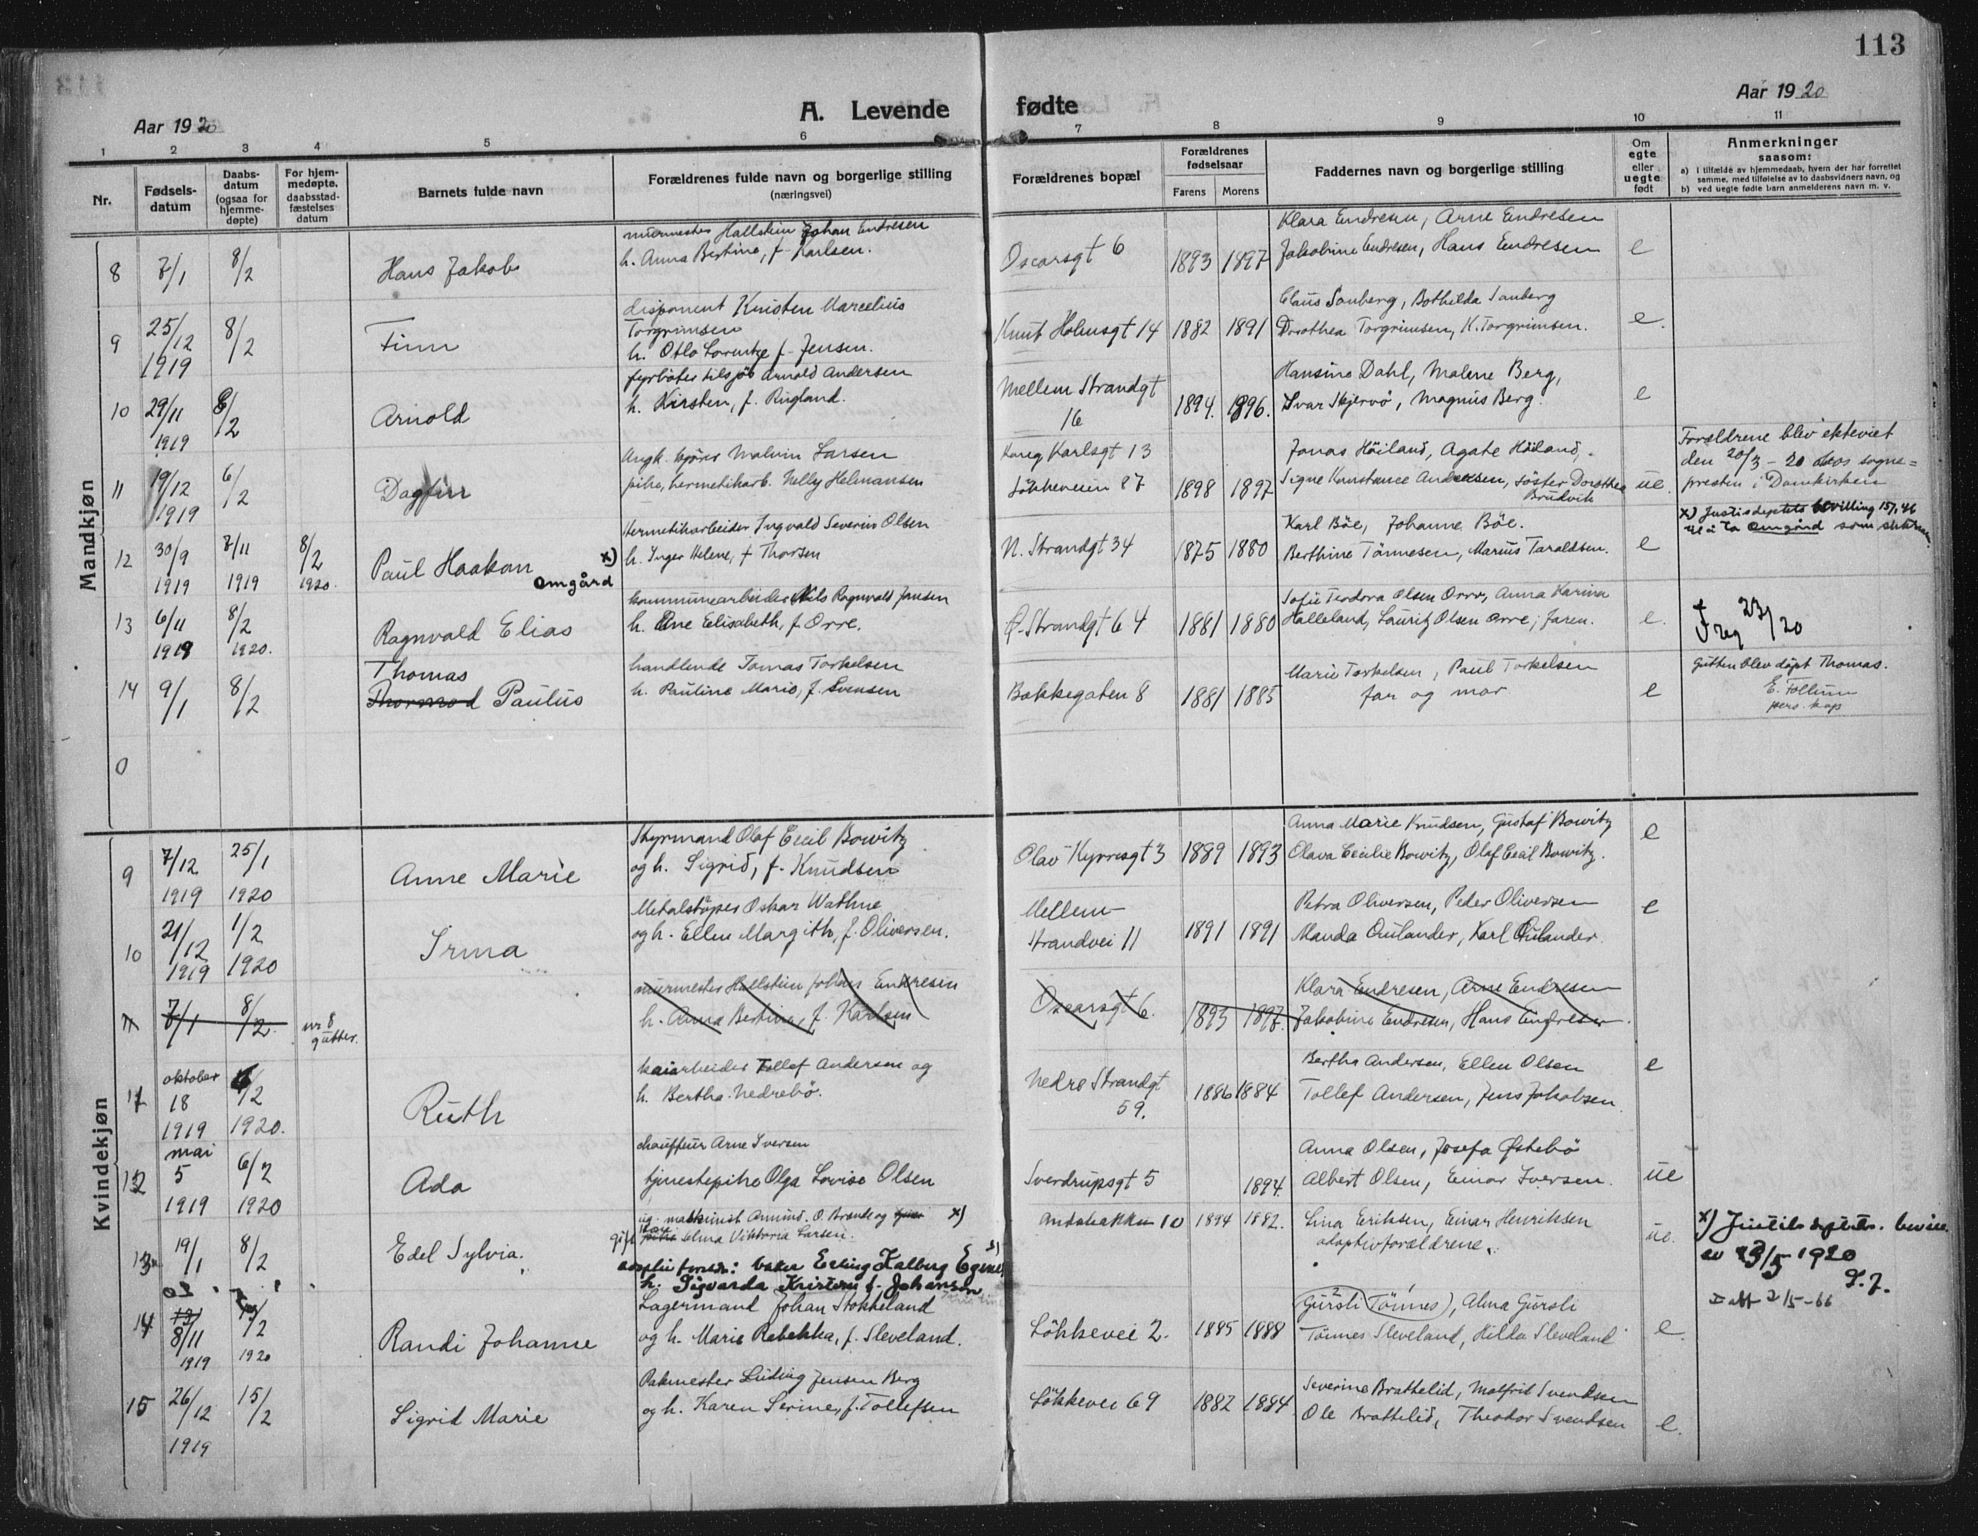 113
Aar 1920
A. Levende fødte
Aar 1920
1 2 3 4 5 6 7 8 9 10 11
Nr.
Fødsels-datum
Daabs-datum (ogsaa for hjemme-døpte)
For hjem-medøpte, daabsstad-fæstelses datum
Barnets fulde navn
Forældrenes fulde navn og borgerlige stilling (næringsvei)
Forældrenes bopæl
Forældrenes fødselsaar
Farens Morens
Faddernes navn og borgerlige stilling
Om egte eller uegte født
Anmerkninger saasom:
a) I tilfælde av hjemmedaab, hvem der har forrettet samme, med tilføielse av to daabsvidners navn, og
b) ved uegte fødte barn anmelderens navn m. v.
Mandkjøn
murmester Hallstein Johan Endresen Klara Endresen, Arne Endresen
8 7/1 8/2 Hans Jakob h. Anna Bertine, f. Karlsen. Oscarsgt 6 1893 1897 Jakobine Endresen, Hans Endresen e
disponent Knisten Marcelius Claus Sanberg, Bothilda Sanberg
9 25/12 1919 8/2 Finn Torgrimsen Knut Holmsgt 14 1882 1891 Dorothea Torgrimsen, K. Torgrimsen. e.
h. Otto Lorentze f. Jensen.
fyrbøter tilsjøs Arnold Andersen Hansine Dahl, Malene Berg,
10 29/11 1919 8/2 Arnold h. Kirsten, f. Rugland. Mellem Strandgt 16 1894. 1896. Ivar Skjervø, Magnus Berg. e
Malvin Larsen Kong Karlsgt 13 Jonas Höiland, Agate Höiland, Forældrene blev ekteviet
11 19/12 1919 6/2 Dagfin pike, hermetikarb. Nelly Helmansen Løkkeveien 87 1898 1897 Signe Konstance Andreasen, søster Dorothea Brudvik ue. den 20/3 - 20 hos sogne=
presten i Domkirken
Hermetikarbeider Ingvald Severin Olsen Karl Bøe, Johanne Bøe. x) Justisdeptets bevilling 15/7.46
12 30/9 1919 7/11 1919 8/2 1920. Paul Haakon x) Omgård h. Inger Helene, f. Thorsen N. Strandgt 34 1875 1880 Berthine Tönnesen, Marius Taraldsen. e til å ta Omgård som slektsnavn.
kommunearbeider Nils Ragnvald Jansen Sofie Teodora Olsen Orre, Anna Karina
13 6/11 1919 8/2 1920. Ragnvald Elias h. Ane Elisabeth, f. Orre. Ø. Strandgt 64 1881 1880 Halleland, Lauritz Olsen Orre, Jaren. e. 23/20
Thomas handlende Tomas Torkelsen Marie Torkelsen, Paul Torkelsen Gutten blev døpt Thomas.
14 9/1 8/2 Thormod Paulus h. Pauline Marie, f. Svensen Bakkegaten 8 1881 1885 far og mor e E. Follum
pers. kap
0
Kvindekjøn
Styrmand Olaf Cecil Bowitz Anna Marie Knudsen, Gustaf Bowitz e
9 7/12 1919 25/1 1920 Anne Marie og h. Sigrid, f. Knudsen Olav Kyrresgt 3 1889 1893 Olava Cecilie Bowitz, Olaf Cecil Bowitz.
Metalstøper Oskar Wathne Mellem- Petra Oliversen, Peder Oliversen e
10 21/12 1919 1/2 1920 Irma og h. Ellen Margith, f. Oliversen. Strandvei 11 1891 1891 Manda Quilander, Karl Quilander.
murmester Hallstein Johan Endresen Klara Endresen, Arne Endresen
11 7/1 8/2. nr 8 gutter. h. Anna Bertine, f. Karlsen Oscarsgt 6. 1893 1897. Jakobine Endresen, Hans Endresen.
kaiarbeider Tollef Andersen og Bertha Andersen, Ellen Olsen e
11 oktober 18 1919 6/2 1920. Ruth h. Bertha Nedrebø. Nedre Strandgt 59. 1886 1884 Tollef Andersen, Jens Jakobsen
chauffeur Arne Iversen Anna Olsen, Josefa Østebø
12 mai 5 1919 6/2 1920 Ada tjenestepike Olga Lovise Olsen Sverdrupsgt 5 1894. Albert Olsen, Einar Iversen. ue
ug. maskinist Amund. O. Brande og x) 10 1894 1882. Lina Eriksen, Einar Henriksen x) Justisdeptets. bevill
13 19/1 8/2 Edel Sylvia. gift Selma Viktoria Larsen. adoptivforældrene. ue. av 23/5 1920
adoptivforeldr: baker Erling Kalberg Egenes x) S. J.
h. Sigvarda Kristine f. Johansen
Lagermand Johan Stokkeland Gursli Tönnes), Alma Gursli att 2/5-66
14 8/11 1919 1920 Randi Johanne og h. Marie Rebekka, f. Sleveland. Løkkevei 2. 1885 1888 Tönnes Sleveland, Hilda Sleveland e.
Pakmester Ludvig Jensen Berg Severine Brattelid, Malfrid Svendsen
15 26/12 1919 15/2 Sigrid Marie og h. Karen Serine, f. Tollefsen Løkkevei 69 1882 1884 Ole Brattelid, Theodor Svendsen e.